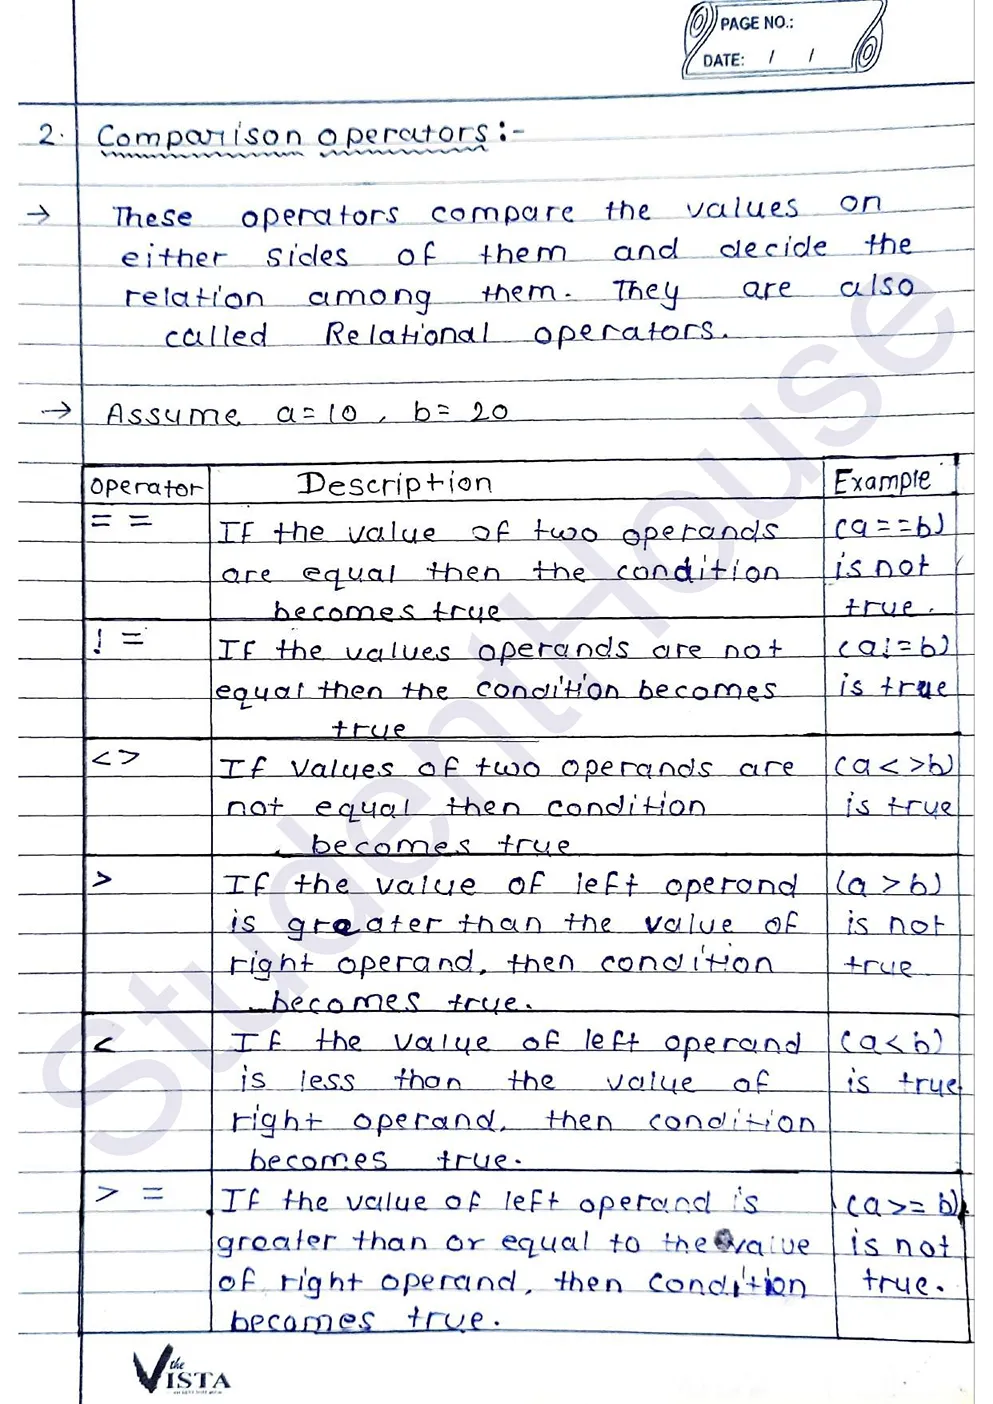 PAGE NO.:
DATE: / /
2. Comparison operators:-
→ These operators compare the values on
either sides of them and decide the
relation among them. They are also
called Relational operators.
→ Assume a=10, b=20
operator Description Example
== If the value of two operands (a==b)
are equal then the condition is not
becomes true true.
!= If the values operands are not (a!=b)
equal then the condition becomes is true
true
<> If values of two operands are (a<>b)
not equal then condition is true
becomes true
> If the value of left operand (a>b)
is greater than the value of is not
right operand, then condition true
becomes true.
< If the value of left operand (a<b)
is less than the value of is true
right operand, then condition
becomes true.
>= If the value of left operand is (a>=b)
greater than or equal to the value is not
of right operand, then condition true.
becomes true.
the
VISTA
StudentHouse